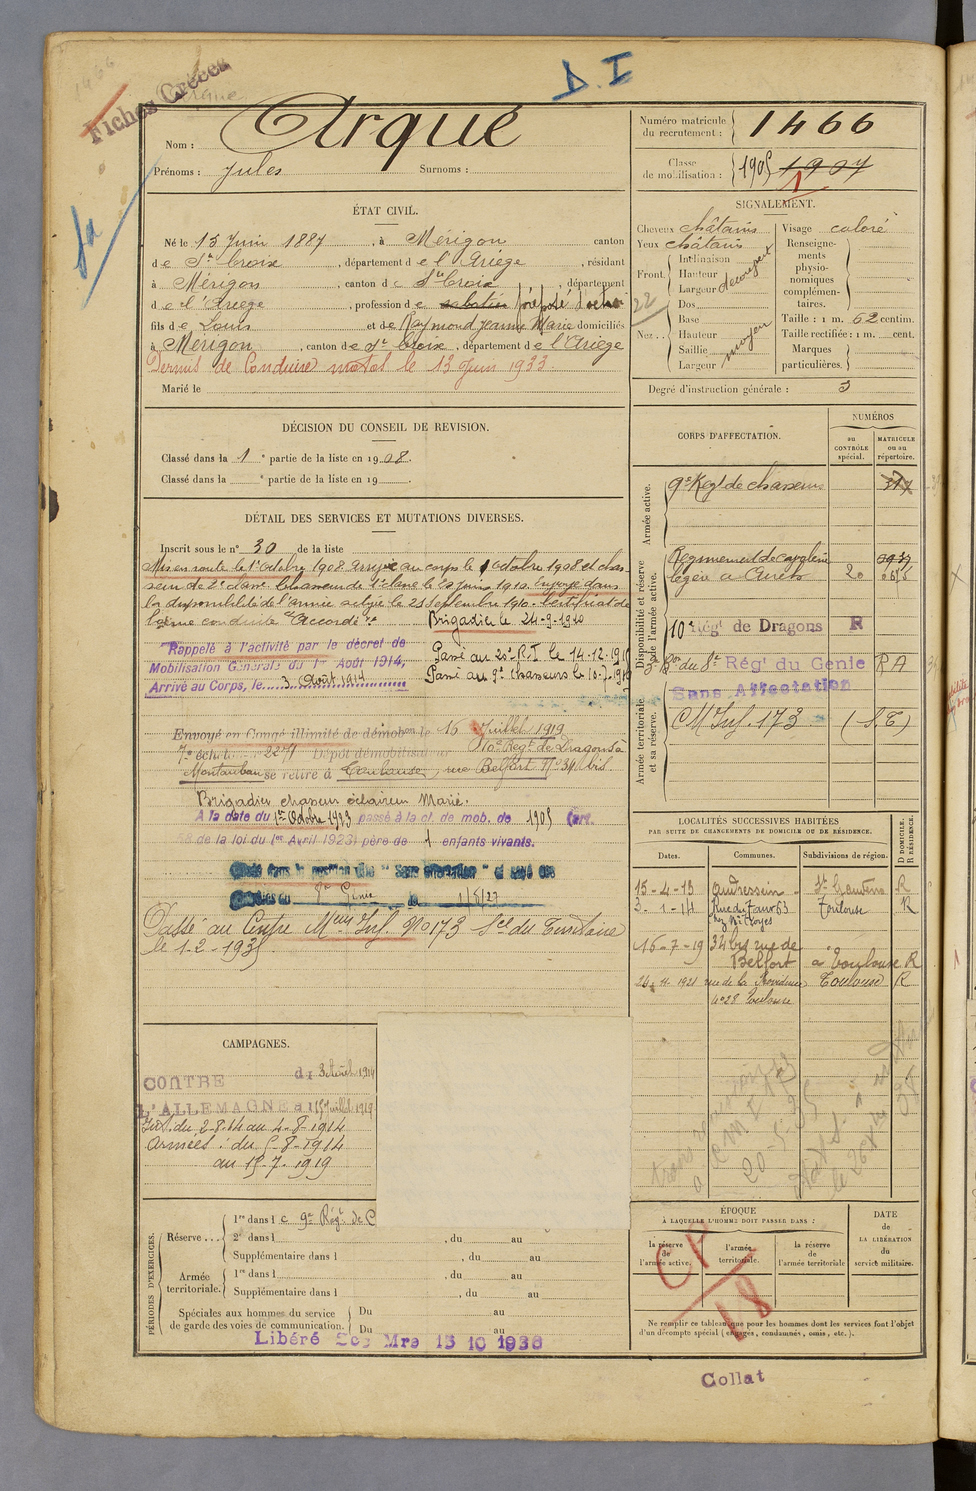 D. I
Fiches Créées
Nom : Arqué
Prénoms : Jules Surnoms :
Numéro matricule du recrutement : 1466
Classe de mobilisation : 1905 1907
ÉTAT CIVIL.
Né le 15 Juin 1887, à Mérigon canton
de Ste Croix, département de l'Ariège, résidant
à Mérigon, canton de Ste Croix, département
de l'Ariège, profession de sabotier préposé d'octroi
fils de Louis et de Raymond Jeanne Marie domiciliés
à Mérigon, canton de Ste Croix, département de l'Ariège
Permis de Conduire motos le 13 Juin 1933.
Marié le
SIGNALEMENT.
Cheveux châtains
Yeux châtains
Front. Inclinaison
Hauteur
Largeur
Nez .. Dos
Base
Hauteur
Saillie moyen
Largeur
Visage coloré
Renseignements physionomiques complémentaires.
Taille : 1 m. 62 centim.
Taille rectifiée : 1 m. cent.
Marques particulières.
Degré d'instruction générale : 3
22
DÉCISION DU CONSEIL DE REVISION.
Classé dans la 1e partie de la liste en 1908.
Classé dans la e partie de la liste en 19 .
DÉTAIL DES SERVICES ET MUTATIONS DIVERSES.
Inscrit sous le n° 30 de la liste
Mis en route le 1er octobre 1908 arrivé au corps le 1 octobre 1908 et chas-
seur de 2e classe. Chasseur de 1e classe le 20 juin 1910. Envoyé dans
la disponibilité de l'armée active le 25 septembre 1910. Certificat de
bonne conduite "Accordé". Brigadier le 24-9-1910
Rappelé à l'activité par le décret de
Mobilisation Générale du 1er Août 1914,
Arrivé au Corps, le 3 Août 1914
Passé au 20e R.I. le 14-12-191
Passé au 9e Chasseurs le 10-7-1919
Envoyé en Congé illimité de démobon le 16 Juillet 1919
7e échelon 2271 Dépôt démobilisateur 10e Régt de Dragons à
Montauban se retire à Toulouse, rue Belfort N° 34 bis
Brigadier chasseur éclaireur Marié.
A la date du 1er Octobre 1923 passé à la cl. de mob. de 1905 (art.
58 de la loi du 1er Avril 1923) père de 1 enfants vivants.
Classé dans la position dite "Sans affectation"
8e Génie 1/5/27
Passé au Centre Mon Inf. N° 173 Son du Territoire
le 1-2-1935
CORPS D'AFFECTATION.
NUMÉROS
au CONTRÔLE spécial.
MATRICULE ou au répertoire.
Armée active.
9e Régt de chasseurs 317
Disponibilité et réserve de l'armée active.
Régiment de cavalerie
légère à Auch 20
10e Régt de Dragons R
Bon du 8e Régt du Génie RA
Sans Affectation
Armée territoriale et sa réserve.
CM Inf. 173 (S.T)
LOCALITÉS SUCCESSIVES HABITÉES
PAR SUITE DE CHANGEMENTS DE DOMICILE OU DE RÉSIDENCE.
Dates. Communes. Subdivisions de région. D DOMICILE. R RÉSIDENCE.
15-4-13 Audressein St Gaudens R
3-1-14 Rue du Taur 63 Toulouse R
16-7-19 34 bis rue de
Belfort à Toulouse R
26-4-1921 rue de la Providence Toulouse R
n° 28 Toulouse
CAMPAGNES.
CONTRE du 3 Août 1914
L'ALLEMAGNE au 15 Juillet 1919
Int. du 2-8-14 au 4-8-1914
Armées : du 5-8-1914
au 15-7-1919
PÉRIODES D'EXERCICES.
Réserve ... 1re dans le 9e Régt de C
2e dans l , du au
Supplémentaire dans l , du au
Armée territoriale. 1re dans l , du au
Supplémentaire dans l , du au
Spéciales aux hommes du service de garde des voies de communication. Du au
Du au
Libéré Ses Mre 13 10 1936
ÉPOQUE
À LAQUELLE L'HOMME DOIT PASSER DANS :
la réserve de l'armée active.
l'armée territoriale.
la réserve de l'armée territoriale
DATE de LA LIBÉRATION du service militaire.
CR 18
Ne remplir ce tableau que pour les hommes dont les services font l'objet
d'un décompte spécial (engagés, condamnés, omis, etc.).
Collat